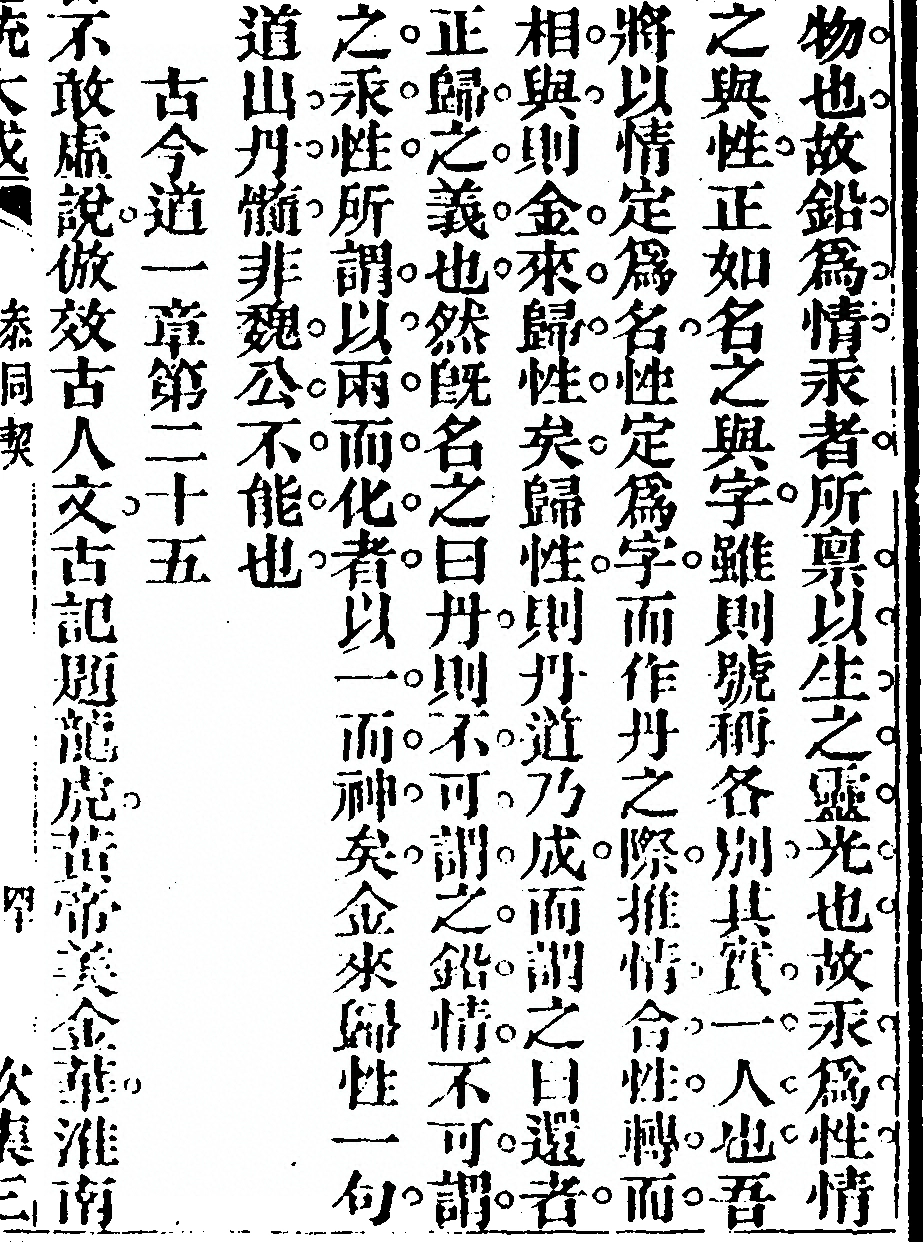 物也故鉛爲情汞者所禀以生之靈光也故汞爲性情
之與性正如名之與字雖則號稱各別其實一人也吾
將以情定爲名性定爲字而作丹之際推情合性轉而
相與則金來歸性矣歸性則丹道乃成而謂之曰還者
正歸之義也然旣名之曰丹則不可謂之鉛情不可謂
之汞性所謂以兩而化者以一而神矣金來歸性一句
道山丹髓非魏公不能也
古今道一章第二十五
不敢虛說倣效古人文古記題龍虎黃帝美金華淮南
參同契